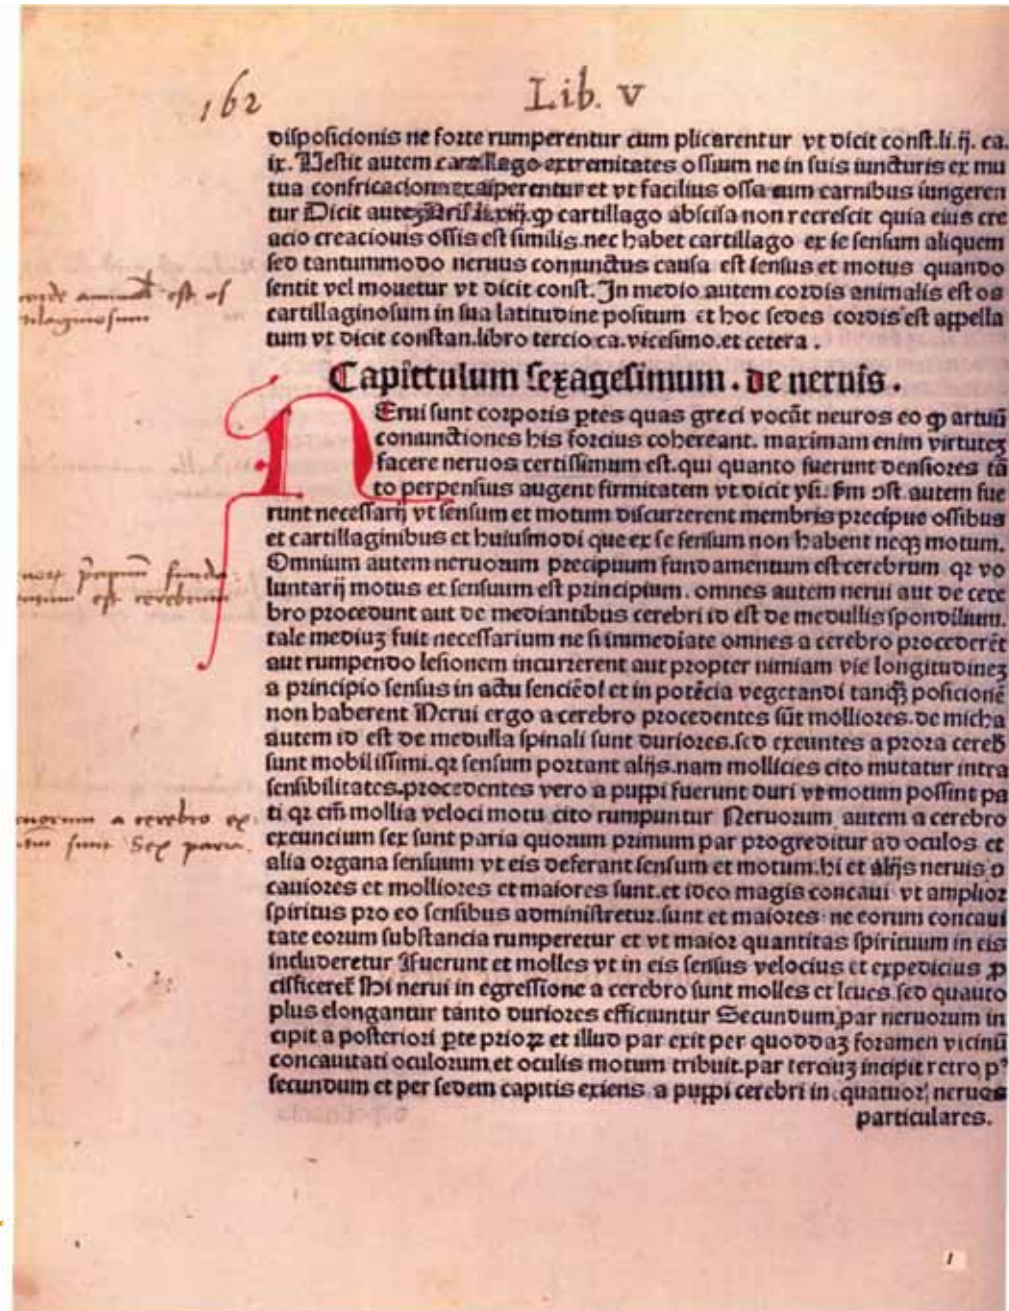 162
Lib. V
disposicionis ne forte rumperentur cum plicarentur vt dicit const.li.ij. ca.
ix. Uestit autem cartillago extremitates ossium ne in suis iuncturis ex mu
tua confricacione exasperentur et vt facilius ossa cum carnibus iungeren
tur Dicit auteʒ Aris.li.xiij. ꝙ cartillago abscisa non recrescit quia eius cre
acio creaciouis ossis est similis.nec habet cartillago ex se sensum aliquem
sed tantummodo neruus coniunctus causa est sensus et motus quando
sentit vel mouetur vt dicit const. In medio autem cordis animalis est os
cartillaginosum in sua latitudine positum et hoc sedes cordis est appella
tum vt dicit constan.libro tercio ca.vicesimo.et cetera .
corde animal est os
Capittulum sexagesimum . de neruis .
NErui sunt corporis ꝑtes quas greci vocāt neuros eo ꝙ artuū
coniunctiones his forcius cohereant. maximam enim virtuteʒ
facere neruos certissimum est.qui quanto fuerunt densiores tā
to perpensius augent firmitatem vt dicit ysi. ẜm ↄst. autem fue
runt necessarij vt sensum et motum discurrerent membris precipue ossibus
et cartillaginibus et huiusmodi que ex se sensum non habent neqʒ motum.
Omnium autem neruorum precipuum fundamentum est cerebrum qꝛ vo
luntarij motus et sensuum est principium. omnes autem nerui aut de cere
bro procedunt aut de mediantibus cerebri id est de medullis spondilium.
est cerebrum
tale mediuʒ fuit necessarium ne si immediate omnes a cerebro procederēt
aut rumpendo lesionem incurrerent aut propter nimiam vie longitudineʒ
a principio sensus in actu senciēdi et in potēcia vegetandi tanqʒ̄ posicionē
non haberent Nerui ergo a cerebro procedentes sūt molliores.de micha
autem id est de medulla spinali sunt duriores.sed exeuntes a prora cereb̄
sunt mobilissimi.qꝛ sensum portant alijs.nam mollicies cito mutatur intra
sensibilitates.procedentes vero a puppi fuerunt duri vt motum possint pa
ti qꝛ cm̄ mollia veloci motu cito rumpuntur Neruorum autem a cerebro
excuncium sex sunt paria quorum primum par progreditur ad oculos et
alia organa sensuum vt eis deferant sensum et motum.hi et alijs neruis ↄ
cauiores et molliores et maiores sunt.et ideo magis concaui vt amplior
spiritus pro eo sensibus administretur.sunt et maiores ne eorum concaui
tate eorum substancia rumperetur et vt maior quantitas spirituum in eis
includeretur Fuerunt et molles vt in eis sensus velocius et expedicius ꝓ
cisficeret̄ Hi nerui in egressione a cerebro sunt molles et leues sed quauto
plus elongantur tanto duriores efficiuntur Secundum par neruorum in
cipit a posteriori ꝑte prioꝝ et illud par exit per quoddaʒ foramen vicinū
concauitati oculorum et oculis motum tribuit.par terciuʒ incipit retro p⁹
secundum et per sedem capitis exiens a puppi cerebri in quatuor neruos
particulares.
a cerebro ex
sunt Sex paria.
1